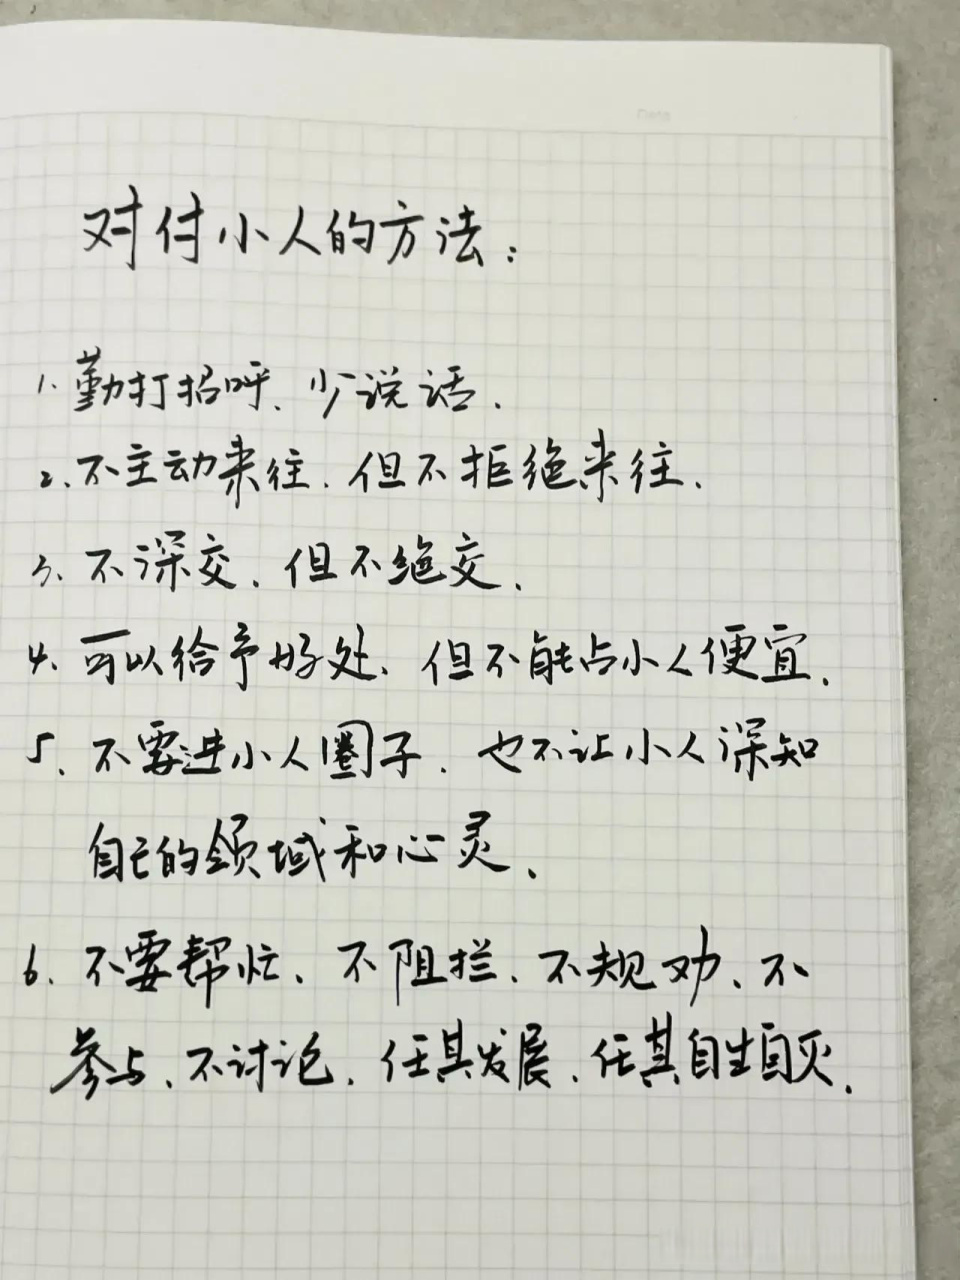 Date
对付小人的方法：
1. 勤打招呼、少说话.
2. 不主动来往. 但不拒绝来往.
3. 不深交. 但不绝交.
4. 可以给予好处、但不能占小人便宜.
5. 不要进小人圈子. 也不让小人深知
自己的领域和心灵.
6. 不要帮忙、不阻拦、不规劝、不
参与、不讨论、任其发展、任其自生自灭.